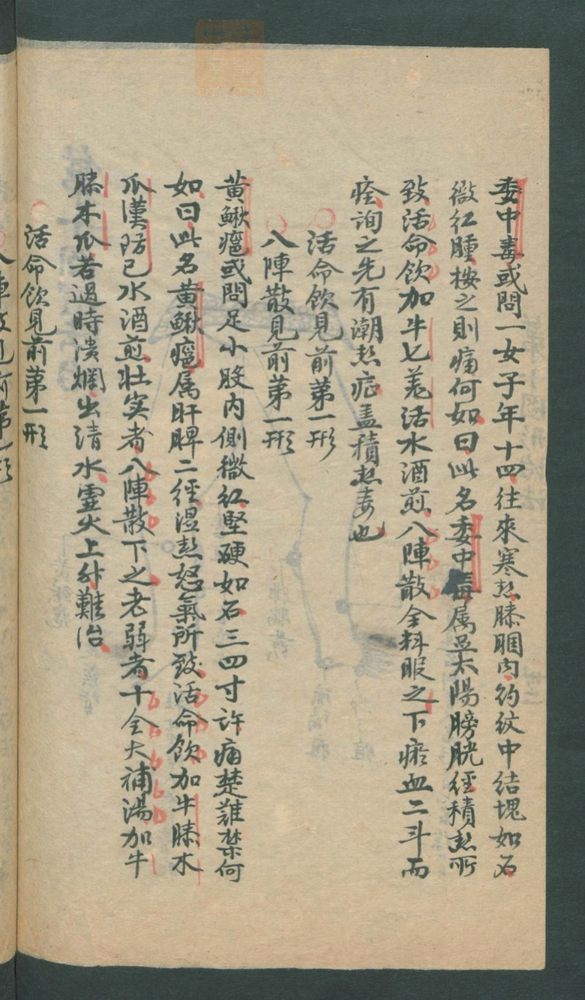 委中毒或問一女子年十四往來寒熱膝膕內約紋中結塊如石
微紅腫按之則痛何如曰此名委中毒属足太陽膀胱經積熱所
致活命飲加牛七羌活水酒煎八陣散全料服之下瘀血二斗而
痊詢之先有潮熱症盖積熱毒也
活命飲見前第一形
八陣散見前第一形
黃鰍癰或問足小股內側微紅堅硬如石三四寸許痛楚難禁何
如曰此名黃鰍癰属肝脾二經湿熱怒氣所致活命飲加牛膝木
爪漢防已水酒煎壯实者八陣散下之老弱者十全大補湯加牛
膝木爪若過時潰爛出清水霊火上升難治
活命飲見前第一形
八陣散見前第一形